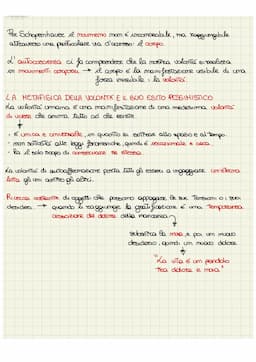 Per Schopenhauer il noumeno non è inconoscibile, ma raggiungibile
attraverso una particolare via d'accesso: il corpo.
L'autocoscienza ci fa comprendere che la nostra volontà si realizza
in movimenti corporei → il corpo è la manifestazione visibile di una
forza invisibile: la volontà.
LA METAFISICA DELLA VOLONTÀ E IL SUO ESITO PESSIMISTICO
La volontà umana è una manifestazione di una medesima volontà
di vivere che anima tutto ciò che esiste.
· È unica e universale, in quanto si sottrae allo spazio e al tempo.
· non sottostà alle leggi fenomeniche, quindi è irrazionale e cieca.
· ha il solo scopo di conservare se stessa.
La volontà di autoaffermazione porta tutti gli esseri a ingaggiare una
lotta gli uni contro gli altri.
Ricerca costante di oggetti che possano appagare le sue tensioni o i suoi
desideri → quando si raggiunge la gratificazione è una temporanea
cessazione del dolore della mancanza
subentra la noia e poi un nuovo
desiderio, quindi un nuovo dolore
"La vita è un pendolo
tra dolore e noia"